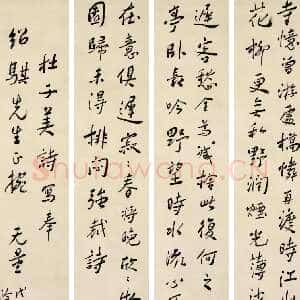 寺憶曾游處橋憐再渡時江山
花柳更無私野潤煙光薄沙
遲客愁全為減捨此復何之
亭臥長吟野望時水流心不
在意俱遲寂寂春將晚欣欣物
園歸未得排悶強裁詩
杜子美詩寫奉
紹騏先生正 无量
Shufawang.cn